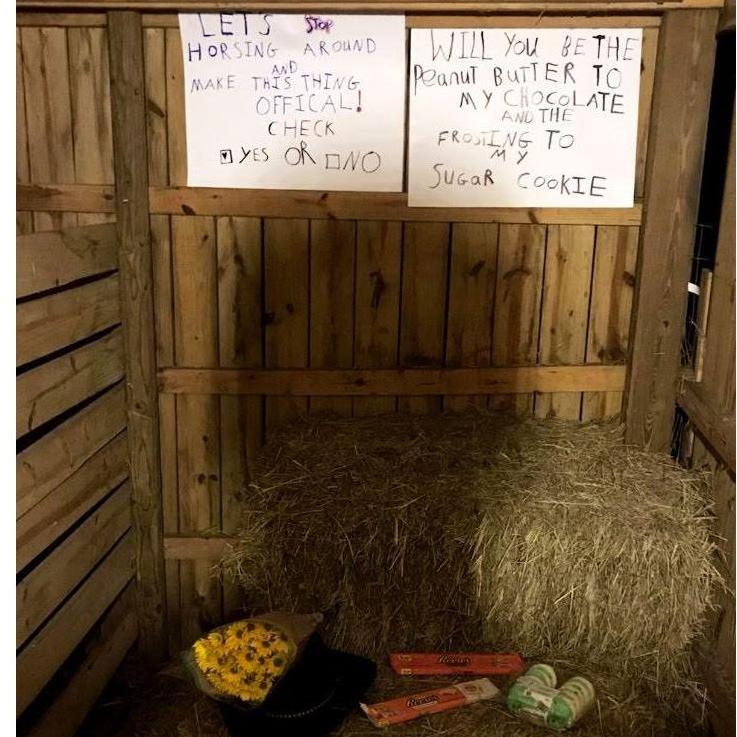 LETS STOP
HORSING AROUND
AND
MAKE THIS THING
OFFICAL!
CHECK
☑ YES OR ☐ NO
WILL YOU BE THE
PEANUT BUTTER TO
MY CHOCOLATE
AND THE
FROSTING TO
MY
SUGAR COOKIE
REESE'S
REESE'S